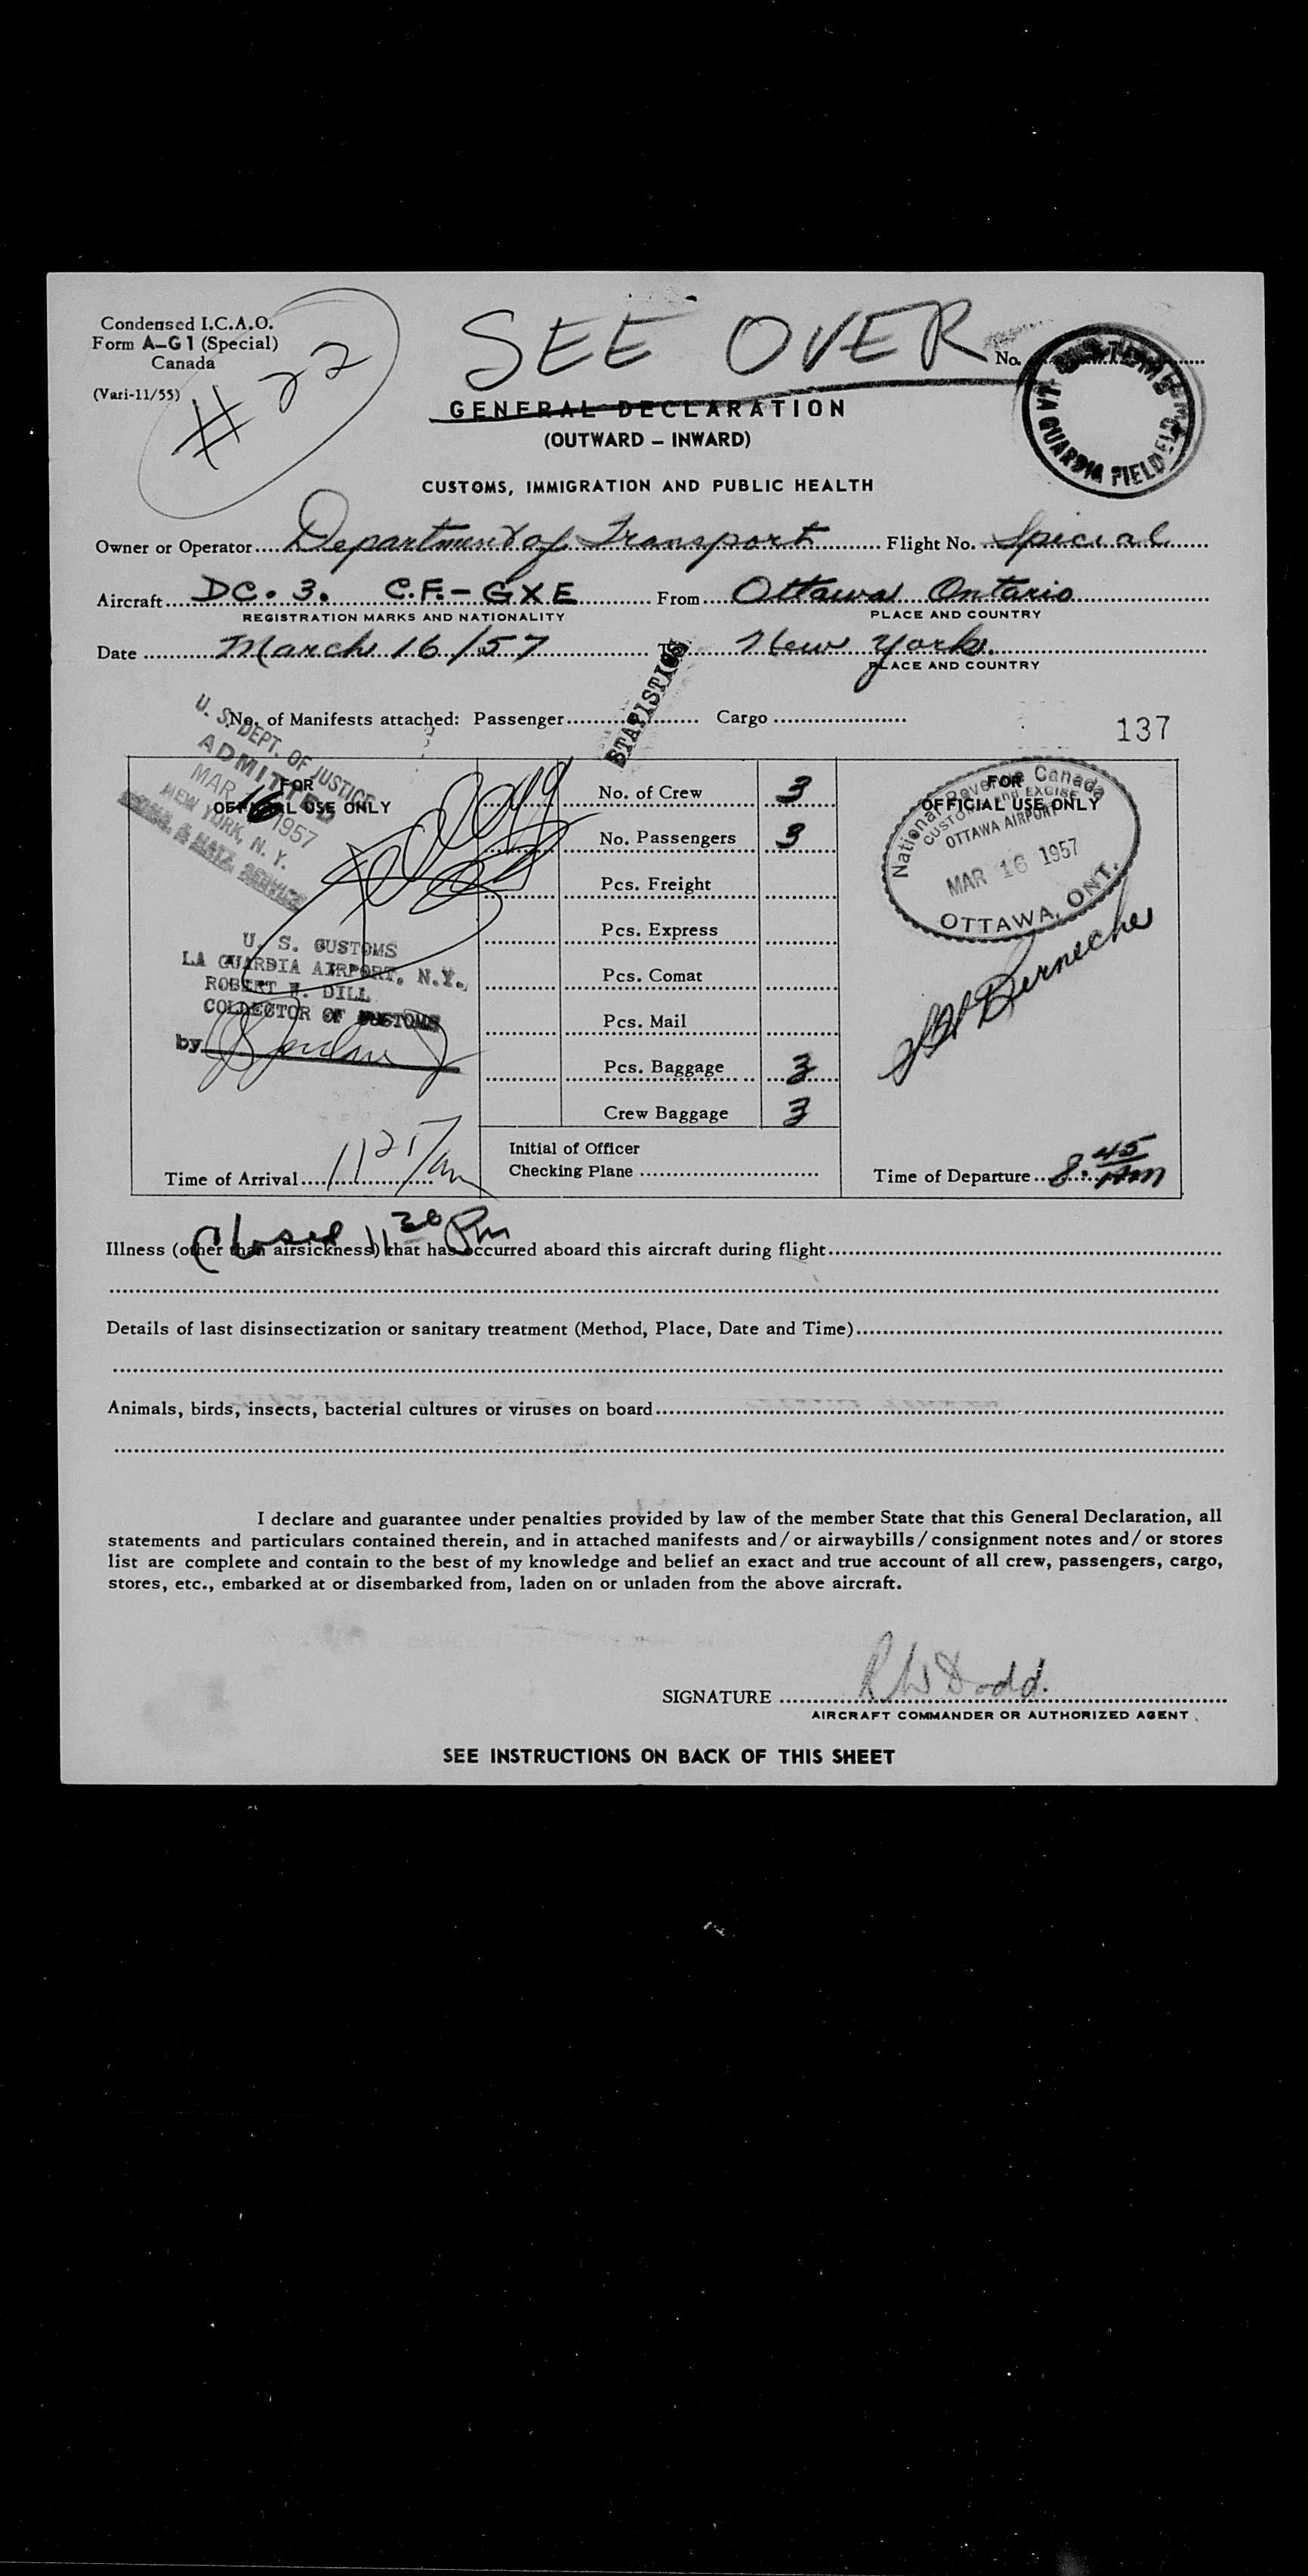 Condensed I.C.A.O.
Form A–G1 (Special)
Canada
(Vari-11/55)
# 22
SEE OVER
No.
LA GUARDIA FIELD
GENERAL DECLARATION
(OUTWARD – INWARD)
CUSTOMS, IMMIGRATION AND PUBLIC HEALTH
Owner or Operator Department of Transport Flight No. Special
Aircraft DC. 3. C.F.-GXE From Ottawa Ontario
REGISTRATION MARKS AND NATIONALITY PLACE AND COUNTRY
Date March 16/57 To New York.
PLACE AND COUNTRY
STATISTICS
No. of Manifests attached: Passenger Cargo
137
U. S. DEPT. OF JUSTICE
ADMITTED
MAR 16 1957
NEW YORK, N. Y.
FOR
OFFICIAL USE ONLY
U. S. CUSTOMS
LA GUARDIA AIRPORT, N.Y.
ROBERT W. DILL
COLLECTOR OF CUSTOMS
by
Time of Arrival 11 25/am
No. of Crew 3
No. Passengers 3
Pcs. Freight
Pcs. Express
Pcs. Comat
Pcs. Mail
Pcs. Baggage 3
Crew Baggage 3
Initial of Officer
Checking Plane
FOR
OFFICIAL USE ONLY
National Revenue Canada
CUSTOMS and EXCISE
OTTAWA AIRPORT
MAR 16 1957
OTTAWA, ONT.
Berneche
Time of Departure 8:45 AM
Closed 11 30 Pm
Illness (other than airsickness) that has occurred aboard this aircraft during flight
Details of last disinsectization or sanitary treatment (Method, Place, Date and Time)
Animals, birds, insects, bacterial cultures or viruses on board
I declare and guarantee under penalties provided by law of the member State that this General Declaration, all
statements and particulars contained therein, and in attached manifests and/or airwaybills/consignment notes and/or stores
list are complete and contain to the best of my knowledge and belief an exact and true account of all crew, passengers, cargo,
stores, etc., embarked at or disembarked from, laden on or unladen from the above aircraft.
SIGNATURE R W Dodd.
AIRCRAFT COMMANDER OR AUTHORIZED AGENT
SEE INSTRUCTIONS ON BACK OF THIS SHEET